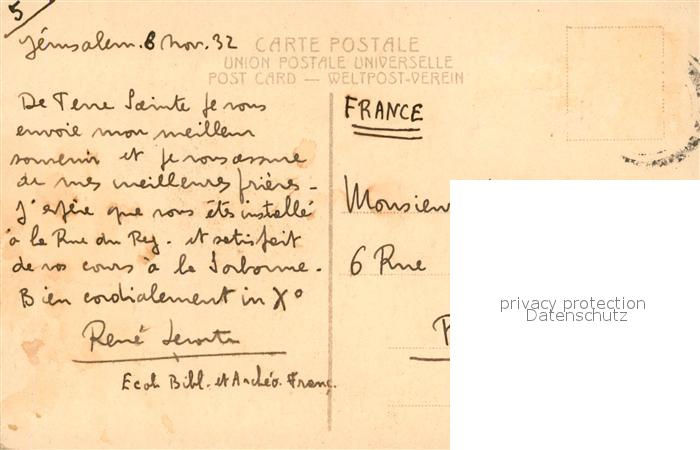 5
Jérusalem. 6 Nov. 32
CARTE POSTALE
UNION POSTALE UNIVERSELLE
POST CARD — WELTPOST-VEREIN
De Terre Sainte je vous
envoie mon meilleur
souvenir et je vous assure
de mes meilleures prières -
J'espère que vous êtes installé
à la Rue du Reg. et satisfait
de vos cours à la Sorbonne.
Bien cordialement in X°
René
Ecole Bibl. et Archéo. Franç.
FRANCE
Monsieur
6 Rue
privacy protection
Datenschutz